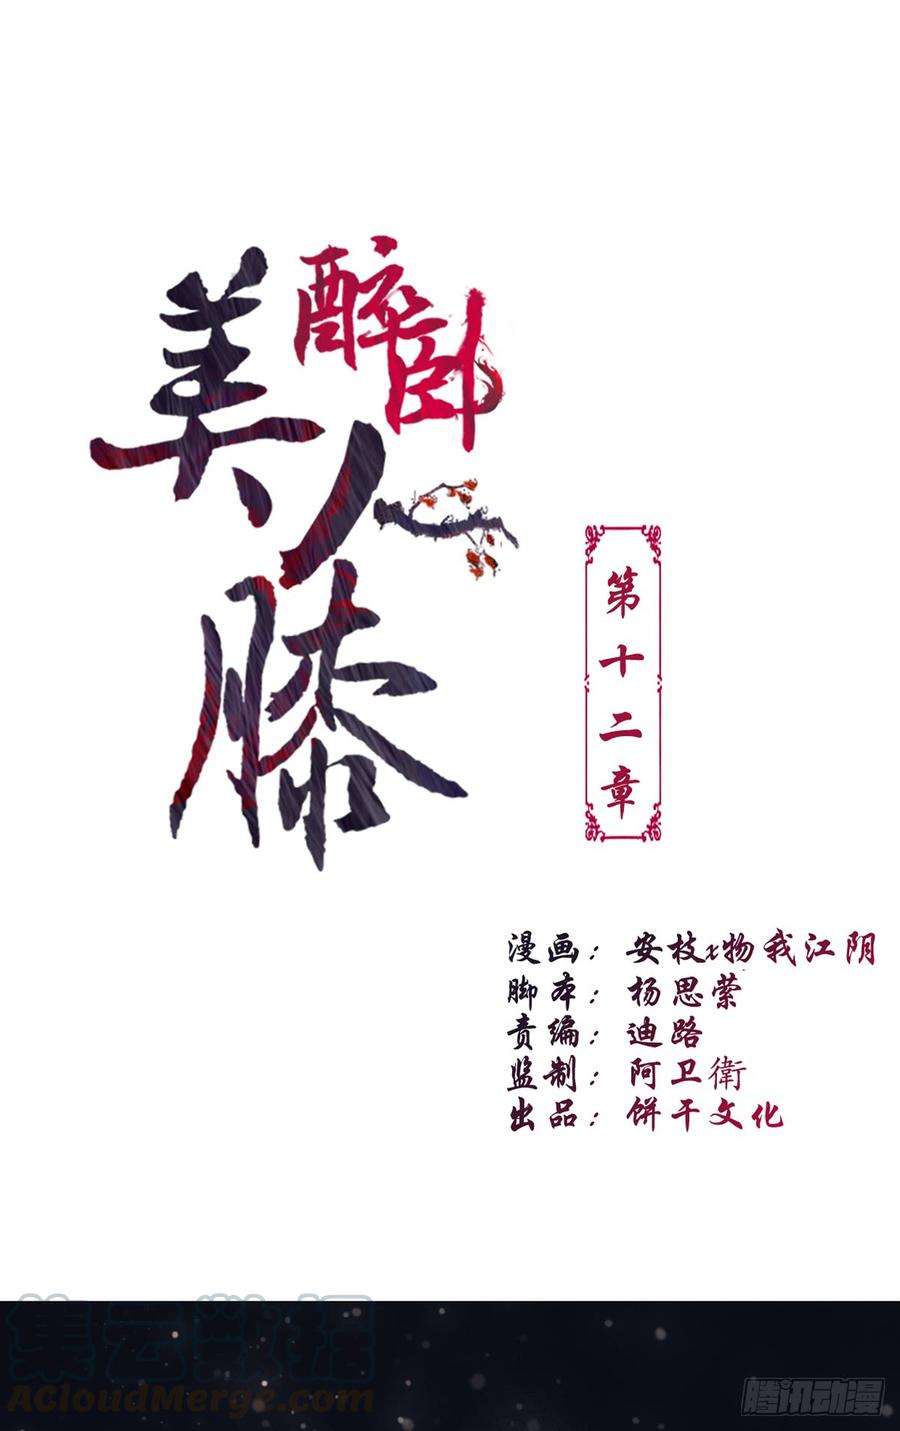 醉卧
美人膝
第十二章
漫画：安枝x物我江阴
脚本：杨思萦
责编：迪路
监制：阿卫衛
出品：饼干文化
集云数据
AcloudMerge.com
腾讯动漫